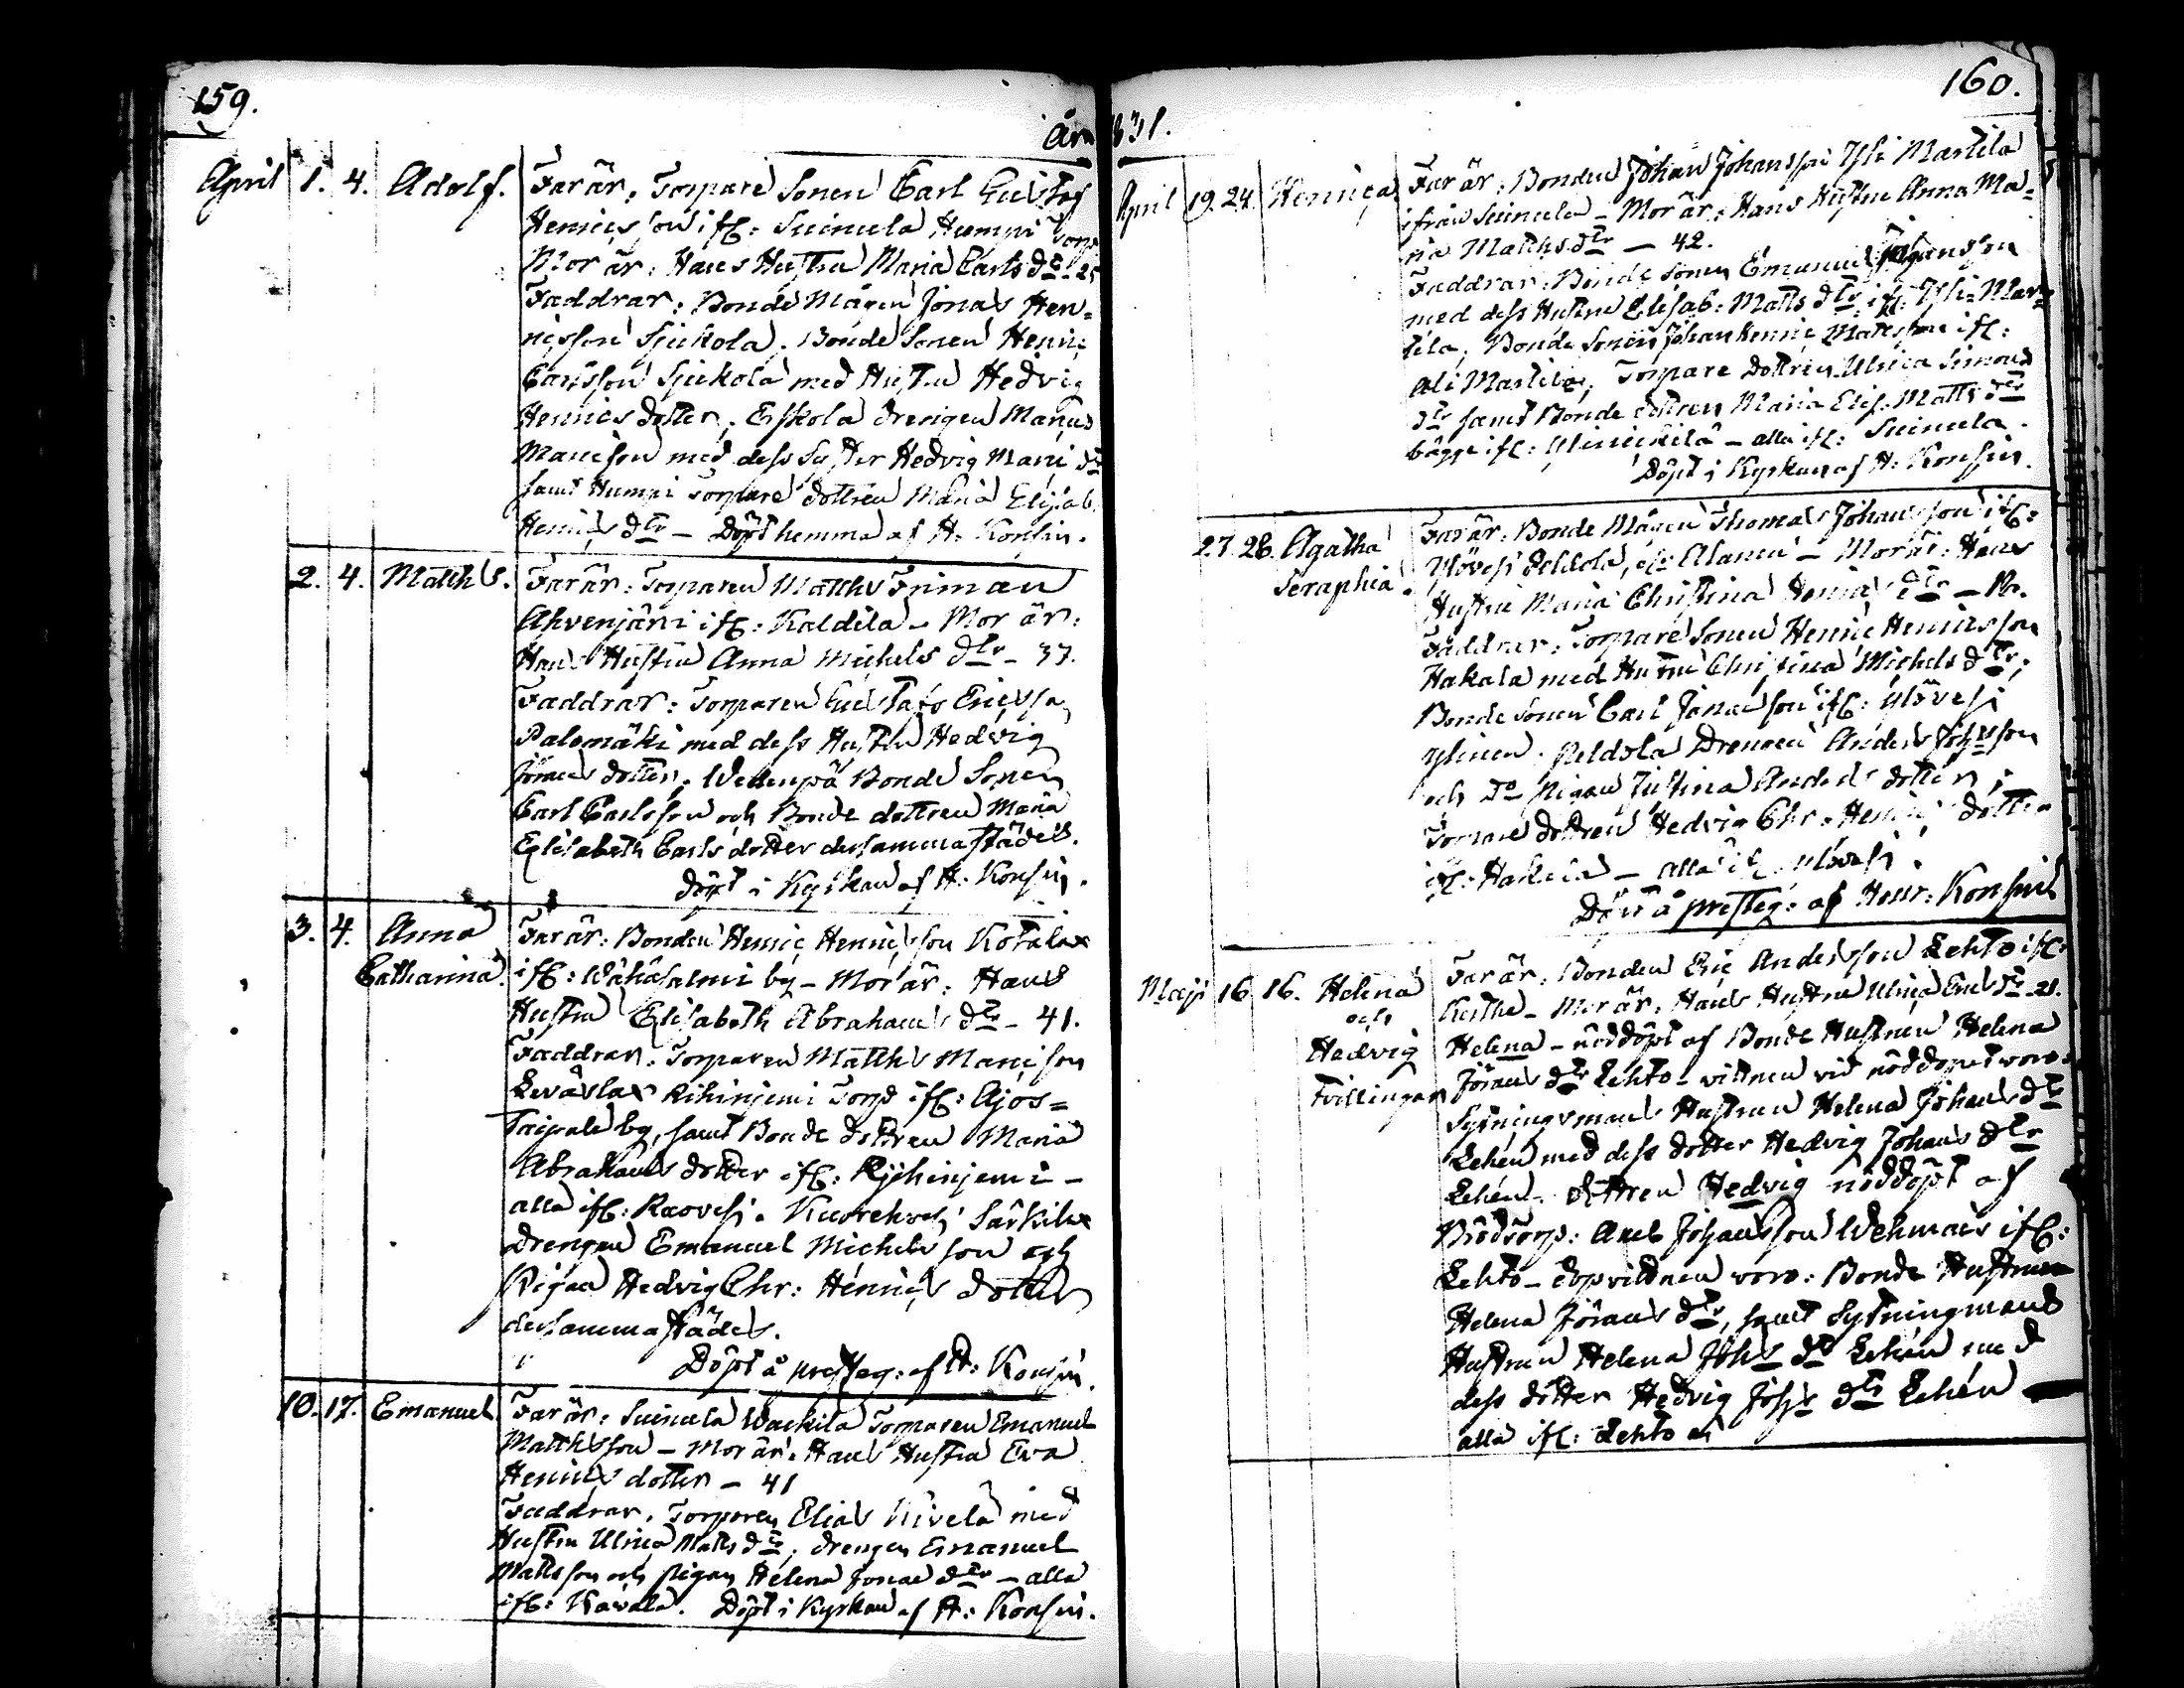 159.
år 1831.
April 1. 4. Adolf. Far är: Torpare Sonen Carl Gustaf
Henricsson ifr: Suinula Humpi Torp
Mor är: Hans Hustru Maria Carls dr 25
Faddrar: Bonde Mågen Jonas Hen-
ricsson Sjukola; Bonde Sonen Henric
Carlsson Sjukola med Hustru Hedvig
Henrics dotter; Erskola drengen Manu
Manuison med dess Syster Hedvig Manu dr
samt Humpi Torpare dottren Maria Elisab.
Henrics dr – Döpt hemma af H: Konsin.
2. 4. Matths. Far är: Torparen Matths Friman
Ahvenjärvi ifr: Kaldila – Mor är:
Hans Hustru Anna Michels dr – 37.
Faddrar: Torparen Gustaf Ericsson
Palomäki med dess Hustru Hedvig
Jörans dotter; Bonde Sonen
Carl Carlsson och Bonde dottren Maria
Elisabeth Carls dotter dersammastädes.
Döpt i Kyrkan af H: Konsin.
3. 4. Anna Catharina. Far är: Bonden Henric Henricsson Kotala
ifr: Wähäsalmi by – Mor är: Hans
Hustru Elisabeth Abrahams dr – 41.
Faddrar: Torparen Matths Manison
Leväslax Rihinjemi Torp ifr: Ajos-
Taipale by, samt Bonde dottren Maria
Abrahams dotter ifr: Ryhinjemi –
alla ifr: Raovesi. Kuorehvesi Särkila
Drengen Emanuel Michelsson och
Pigan Hedvig Chr: Henrics dotter
dersammastädes.
Döpt å presteg: af H: Konsin.
10. 17. Emanuel Far är: Suinula Wackila Torparen Emanuel
Matthsson – Mor är: Hans Hustru Eva
Henrics dotter – 41
Faddrar: Torparen Elias Kivelä med
Hustru Ulrica Matts dr; drengen Emanuel
Mattsson och pigan Helena Jonae dr – alla
ifr: Kavala. Döpt i Kyrkan af H: Konsin.
160.
April 19. 24. Henrica Far är: Bonden Johan Johansson Yli Martila
ifrån Suinula – Mor är: Hans Hustru Anna Ma-
ria Matths dr – 42.
Faddrar: Bonde Sonen Emanuel Johansson
med dess Hustru Elisab: Matts dr ifr: Yli-Mar-
tila; Bonde Sonen Johan Henric Mattsson ifr:
Ali Martila; Torpare Dottren Ulrica Simons
dr samt Bonde dottren Maria Elis: Matts dr
bägge ifr: – alla ifr: Suinula.
Döpt i Kyrkan af H: Konsin.
27. 28. Agatha Seraphia. Far är: Bonde Mågen Thomas Johansson ifr:
Ylövesi Peldola, – Mor är: Hans
Hustru Maria Christina Henrics dr –
Faddrar: Torpare Sonen Henric Henricsson
Hakala med Hustru Christina Michels dr;
Bonde Sonen Carl Jonasson ifr: Ylövesi
Ylinen; Peldola Drengen Anders Johsson
och do pigan Justina Anders dotter;
Torpare dottren Hedvig Chr: Henrics dotter
ifr: Hakala – alla ifr: Ylövesi.
Döpt å presteg: af Herr: Konsin
Maji 16 16. Helena
och
Hedvig
Tvillingar
Far är: Bonden Eric Andersson Lehto ifr:
– Mor är: Hans Hustru Ulrica Erics dr – 21.
Helena – nöddöpt af Bonde Hustrun Helena
Jörans dr Lehto – vittnen vid nöddopet voro:
Sytningsmans Hustrun Helena Johans dr
Lehén med dess dotter Hedvig Johans dr
Lehén. dottren Hedvig nöddöpt af
Brödtorp: Axel Johansson Wehmais ifr:
Lehto – dopvittnen voro: Bonde Hustrun
Helena Jörans dr, samt Sytningmans
Hustrun Helena Johs dr Lehén med
dess dotter Hedvig Johs dr Lehén
alla ifr: Lehto